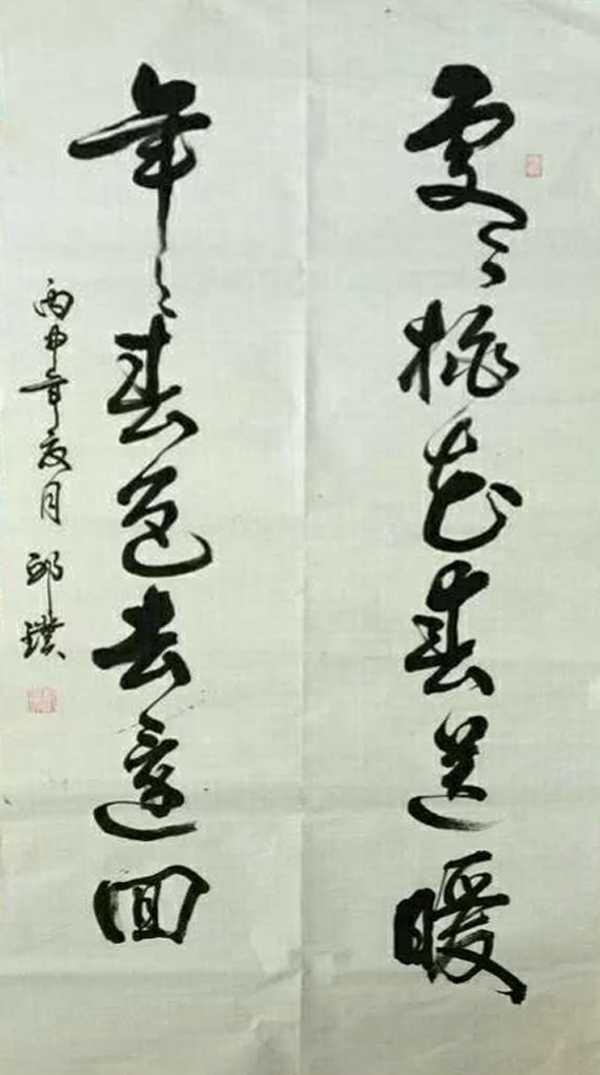 處々桃花春送暖
年々春色去還回
丙申年夏月 邱璞